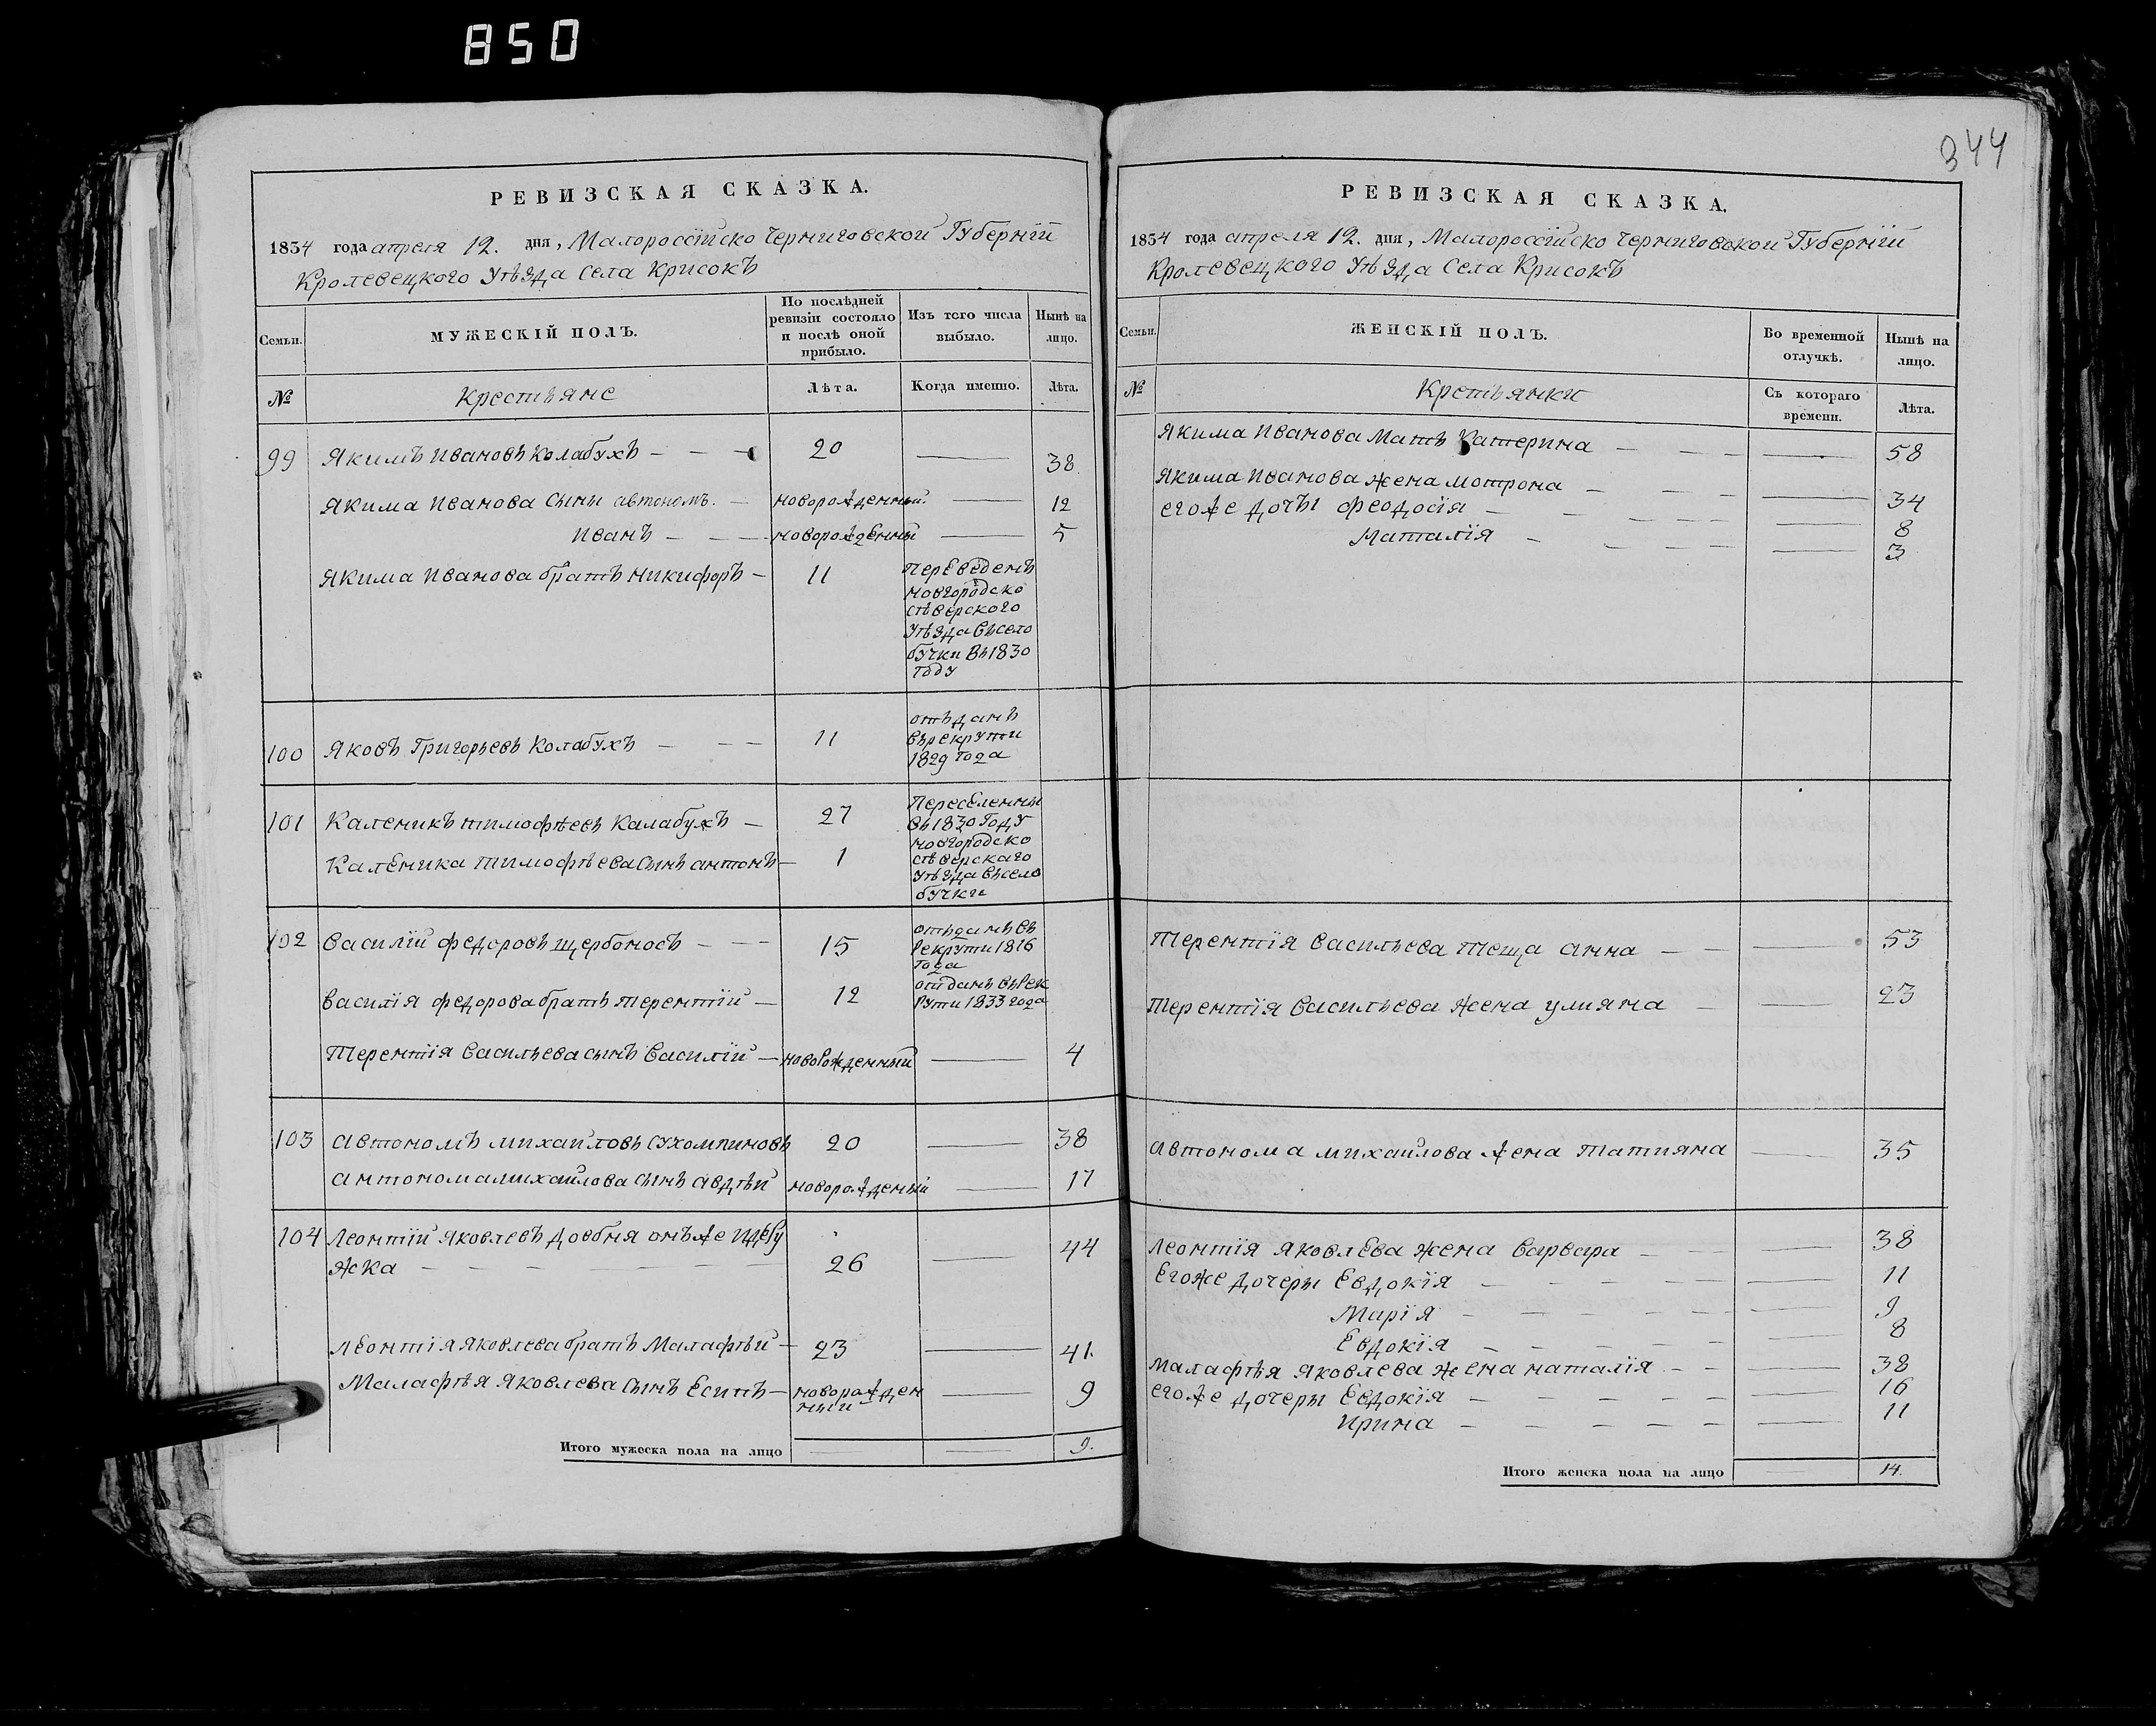 850
РЕВИЗСКАЯ СКАЗКА.
1834 года апреля 12. дня, Малоросїйско Черниговской Губернїй
Кролевецкого Уѣзда Села Крисокъ
Семьи.
МУЖЕСКІЙ ПОЛЪ.
По послѣдней
ревизіи состояло
и послѣ оной
прибыло.
Изъ того числа
выбыло.
Нынѣ на
лицо.
№
Крестьяне
Лѣта.
Когда именно.
Лѣта.
99 Якимъ Ивановъ Колабухъ 20 38
Якима Иванова Сыны автономъ. новорожденный. 12
Иванъ новорожденный 5
Якима Иванова братъ Никифоръ 11 Переведенъ
новгородско
сѣверского
Уѣзда Въсело
бучки Въ1830
году
100 Яковъ Григорьевъ Колабухъ 11 отъданъ
върекрути
1829 года
101 Каленикъ тимофѣевъ Калабухъ 27 Переселенны
Въ1830 Году
новгородско
сѣверскаго
Уѣзда Въсело
бучки
Каленика тимофѣева сынъ антонъ 1
102 Василїй федоровъ щербоносъ 15 отъданъ Въ
Рекрути 1816
года
Василїя федорова братъ терентїй 12 отданъ ВъРек
Рути 1833 года
Терентїя Васильева сынъ Василїй новорожденный 4
103 автономъ михайловъ сухомлиновъ 20 38
антонома михайлова сынъ авдѣй новорожденый 17
104 Леонтїй Яковлевъ довбня онъже
жка 26 44
Леонтїя Яковлева братъ Малафѣй 23 41.
Малафѣя Яковлева сынъ Есипъ новорожден
ный 9
Итого мужеска пола на лицо 9.
344
РЕВИЗСКАЯ СКАЗКА.
1834 года апреля 12. дня, Малоросїйско Черниговской Губернїй
Кролевецкого Уѣзда Села Крисокъ
Семьи.
ЖЕНСКІЙ ПОЛЪ.
Во временной
отлучкѣ.
Нынѣ на
лицо.
№
Крѣтьянки
Съ котораго
времени.
Лѣта.
Якима Иванова Мать Катерина 58
Якима Иванова жена мотрона 34
егоже дочьі феодосїя 8
Наталїя 3
Терентїя Васильева теща анна 53
Терентїя Васильева жена улияна 23
автонома михаилова жена татияна 35
Леонтїя Яковлева жена Варвара 38
Егоже дочеры Евдокїя 11
Марїя 9
Евдокїя 8
Малафѣя Яковлева жена наталїя 38
егоже дочеры Евдокїя 16
Ирина 11
Итого женска пола на лицо 14.